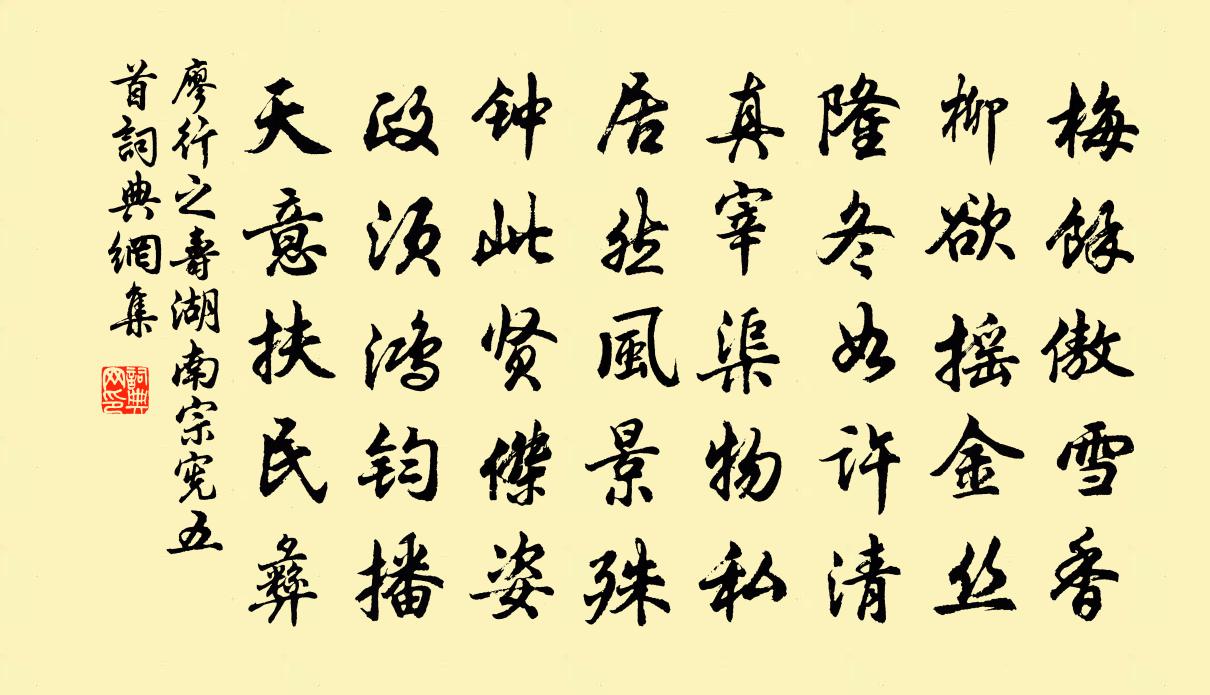 梅餘傲雪香
柳欲摇金丝
隆冬如许清
真宰渠物私
居然風景殊
钟此贤傑姿
政须鸿钧播
天意扶民彝
廖行之壽湖南宗宪五
首詞典網集
詞典
网印